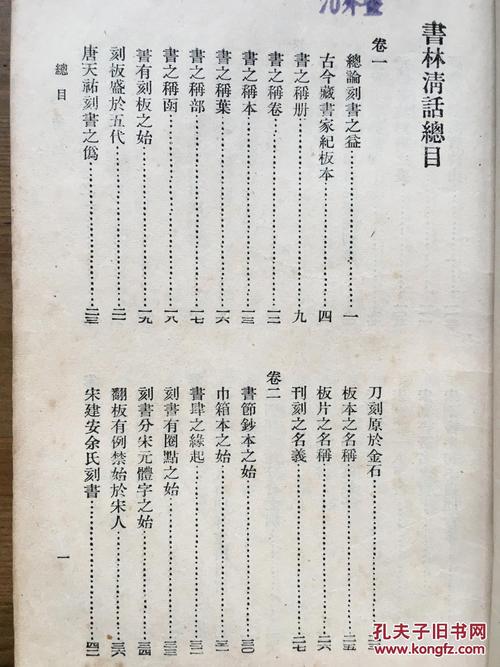 書林清話總目
卷一
總論刻書之益⋯⋯一
古今藏書家紀板本⋯⋯四
書之稱册⋯⋯九
書之稱卷⋯⋯一二
書之稱本⋯⋯一三
書之稱葉⋯⋯一六
書之稱部⋯⋯一七
書之稱函⋯⋯一八
書有刻板之始⋯⋯一九
刻板盛於五代⋯⋯二一
唐天祐刻書之僞⋯⋯二三
刀刻原於金石
板本之名稱⋯⋯二五
板片之名稱⋯⋯二六
刊刻之名義⋯⋯二七
卷二
書節鈔本之始⋯⋯三〇
巾箱本之始⋯⋯三一
書肆之緣起⋯⋯三二
刻書有圈點之始⋯⋯三三
刻書分宋元體字之始⋯⋯三四
翻板有例禁始於宋人⋯⋯三六
宋建安余氏刻書⋯⋯四二
總目
一
孔夫子旧书网
KONGFZ.COM